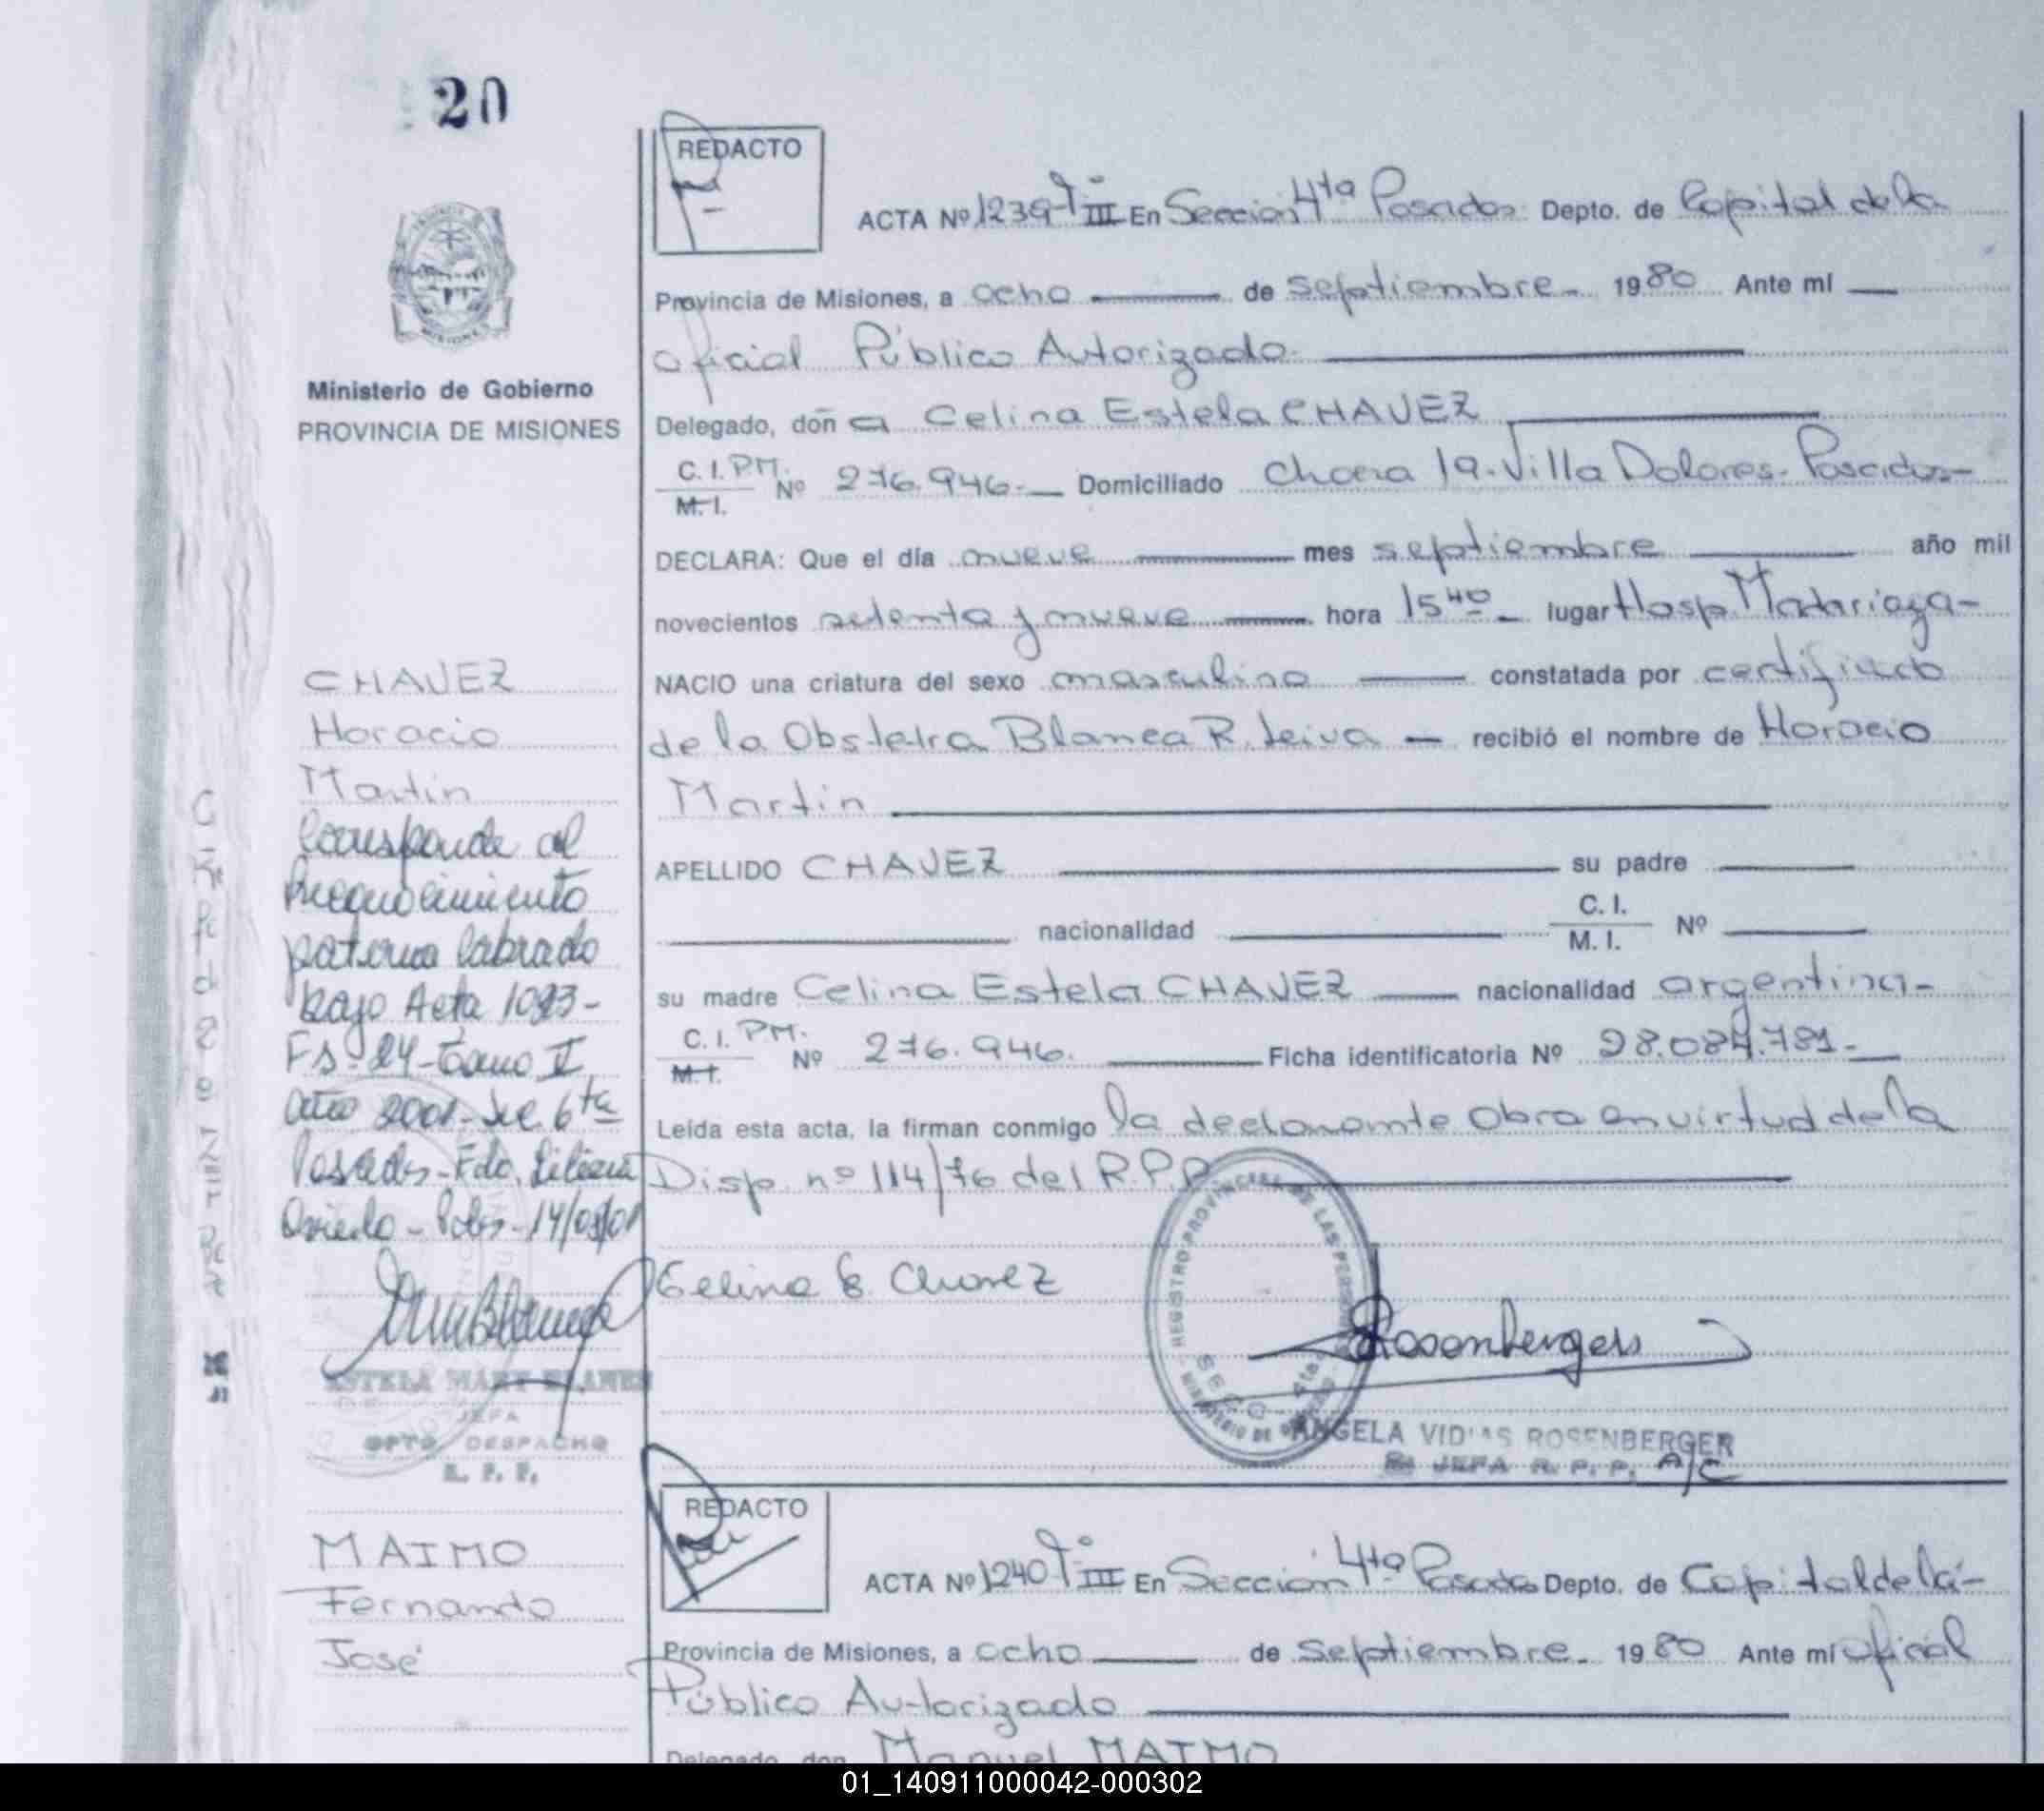 20
REDACTO
ACTA Nº 1239 Tº III En Sección 4ta Posadas Depto. de Capital de la
Provincia de Misiones, a ocho de septiembre - 1980 Ante mí
oficial Público Autorizado.
Ministerio de Gobierno
PROVINCIA DE MISIONES
Delegado, doña Celina Estela CHAVEZ
C. I. PM.
M. I.
Nº 276.946.- Domiciliado Chacra 19 - Villa Dolores - Posadas -
DECLARA: Que el día nueve mes septiembre año mil
novecientos setenta y nueve hora 15 40 - lugar Hosp. Madariaga -
NACIO una criatura del sexo masculino constatada por certificado
de la Obstetra Blanca R. Leiva - recibió el nombre de Horacio
Martín
APELLIDO CHAVEZ su padre
nacionalidad C. I.
M. I. Nº
su madre Celina Estela CHAVEZ nacionalidad argentina -
C. I. PM.
M. I.
Nº 276.946. Ficha identificatoria Nº 28.084.781.-
Leída esta acta, la firman conmigo la declarante Obra en virtud de la
Disp. nº 114/76 del R.P.P.
Celina E. Chavez
REGISTRO PROVINCIAL DE LAS PERSONAS
Rosenberger
ANGELA VIDIAS ROSENBERGER
JEFA R. P. P. A/C
CHAVEZ
Horacio
Martín
Corresponde al
Reconocimiento
paterno labrado
bajo Acta 1093 -
Fs - 24 - Tomo
Año 2001 - Sec. 6ta
Posadas - Fdo. Liliana
Oviedo - Pdas - 14/09/01
ESTELA MARY BLANES
JEFA
DPTO. DESPACHO
R. P. P.
REDACTO
ACTA Nº 1240 Tº III En Sección 4ta Posadas Depto. de Capital de la -
Provincia de Misiones, a ocho de septiembre - 1980 Ante mí oficial
Público Autorizado
Delegado, don Manuel MAIMO
MAIMO
Fernando
José
01_140911000042-000302